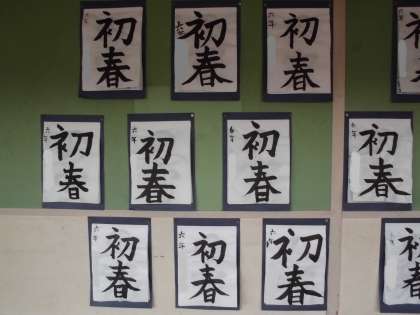 六年 初春
六年 初春
六年 初春
六年
六年 初春
六年 初春
六年 初春
六年 初春
六年 初春
六年 初春
六年 初春